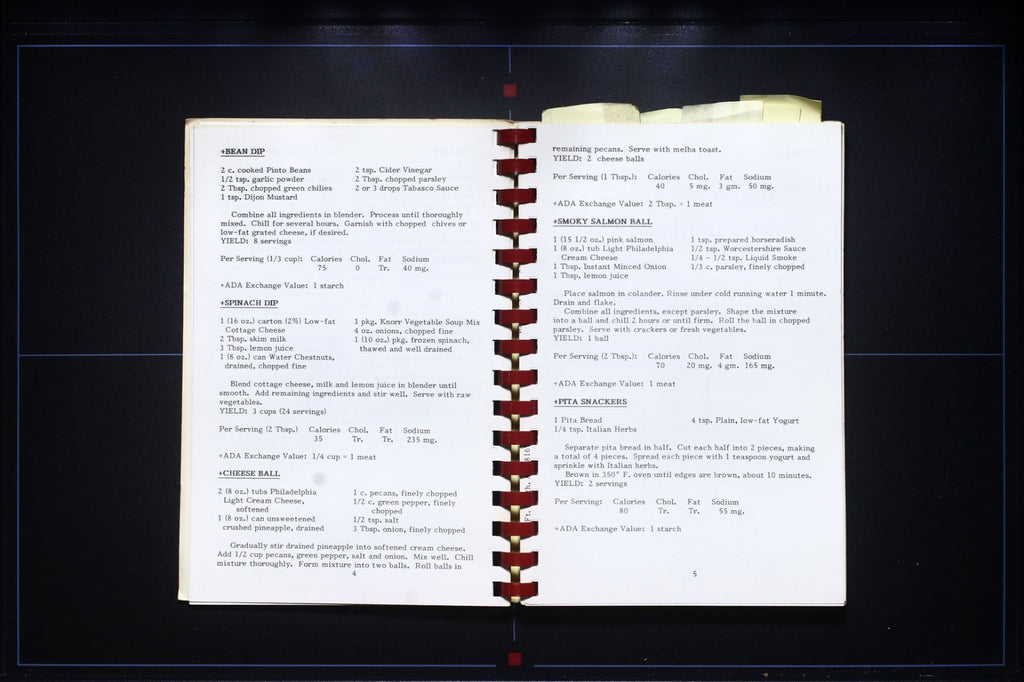 +BEAN DIP
2 c. cooked Pinto Beans
1/2 tsp. garlic powder
2 Tbsp. chopped green chilies
1 tsp. Dijon Mustard
2 tsp. Cider Vinegar
2 Tbsp. chopped parsley
2 or 3 drops Tabasco Sauce
Combine all ingredients in blender. Process until thoroughly
mixed. Chill for several hours. Garnish with chopped chives or
low-fat grated cheese, if desired.
YIELD: 8 servings
Per Serving (1/3 cup): Calories Chol. Fat Sodium
75 0 Tr. 40 mg.
+ADA Exchange Value: 1 starch
+SPINACH DIP
1 (16 oz.) carton (2%) Low-fat
Cottage Cheese
2 Tbsp. skim milk
3 Tbsp. lemon juice
1 (8 oz.) can Water Chestnuts,
drained, chopped fine
1 pkg. Knorr Vegetable Soup Mix
4 oz. onions, chopped fine
1 (10 oz.) pkg. frozen spinach,
thawed and well drained
Blend cottage cheese, milk and lemon juice in blender until
smooth. Add remaining ingredients and stir well. Serve with raw
vegetables.
YIELD: 3 cups (24 servings)
Per Serving (2 Tbsp.) Calories Chol. Fat Sodium
35 Tr. Tr. 235 mg.
+ADA Exchange Value: 1/4 cup = 1 meat
+CHEESE BALL
2 (8 oz.) tubs Philadelphia
Light Cream Cheese,
softened
1 (8 oz.) can unsweetened
crushed pineapple, drained
1 c. pecans, finely chopped
1/2 c. green pepper, finely
chopped
1/2 tsp. salt
3 Tbsp. onion, finely chopped
Gradually stir drained pineapple into softened cream cheese.
Add 1/2 cup pecans, green pepper, salt and onion. Mix well. Chill
mixture thoroughly. Form mixture into two balls. Roll balls in
4
remaining pecans. Serve with melba toast.
YIELD: 2 cheese balls
Per Serving (1 Tbsp.): Calories Chol. Fat Sodium
40 5 mg. 3 gm. 50 mg.
+ADA Exchange Value: 2 Tbsp. = 1 meat
+SMOKY SALMON BALL
1 (15 1/2 oz.) pink salmon
1 (8 oz.) tub Light Philadelphia
Cream Cheese
1 Tbsp. Instant Minced Onion
1 Tbsp. lemon juice
1 tsp. prepared horseradish
1/2 tsp. Worcestershire Sauce
1/4 - 1/2 tsp. Liquid Smoke
1/3 c. parsley, finely chopped
Place salmon in colander. Rinse under cold running water 1 minute.
Drain and flake.
Combine all ingredients, except parsley. Shape the mixture
into a ball and chill 2 hours or until firm. Roll the ball in chopped
parsley. Serve with crackers or fresh vegetables.
YIELD: 1 ball
Per Serving (2 Tbsp.): Calories Chol. Fat Sodium
70 20 mg. 4 gm. 165 mg.
+ADA Exchange Value: 1 meat
+PITA SNACKERS
1 Pita Bread
1/4 tsp. Italian Herbs
4 tsp. Plain, low-fat Yogurt
Separate pita bread in half. Cut each half into 2 pieces, making
a total of 4 pieces. Spread each piece with 1 teaspoon yogurt and
sprinkle with Italian herbs.
Brown in 350° F. oven until edges are brown, about 10 minutes.
YIELD: 2 servings
Per Serving: Calories Chol. Fat Sodium
80 Tr. Tr. 55 mg.
+ADA Exchange Value: 1 starch
5